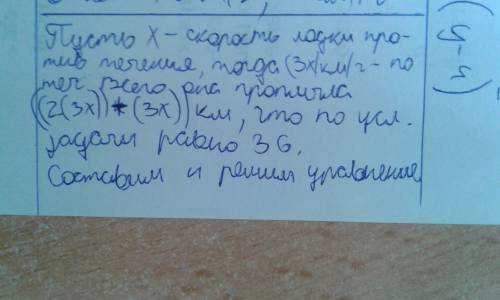 Пусть X – скорость лодки про-
тив течения, тогда (3x)км/г - по
теч. Всего она проплыла
((2(3x))*(3x)) км, что по усл.
задачи равно 36.
Составим и решим уравнение